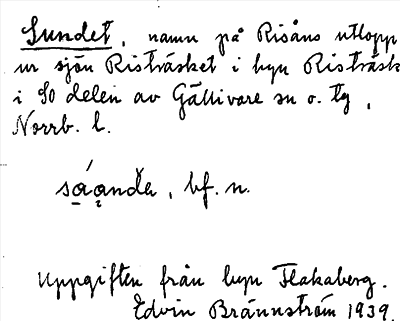 Sundet, namn på Risåns utlopp
ur sjön Risträsket i byn Risträsk
i SO delen av Gällivare sn o. tg,
Norrb. l.
bf. n.
Uppgiften från byn Flakaberg.
Edvin Brännström 1939.